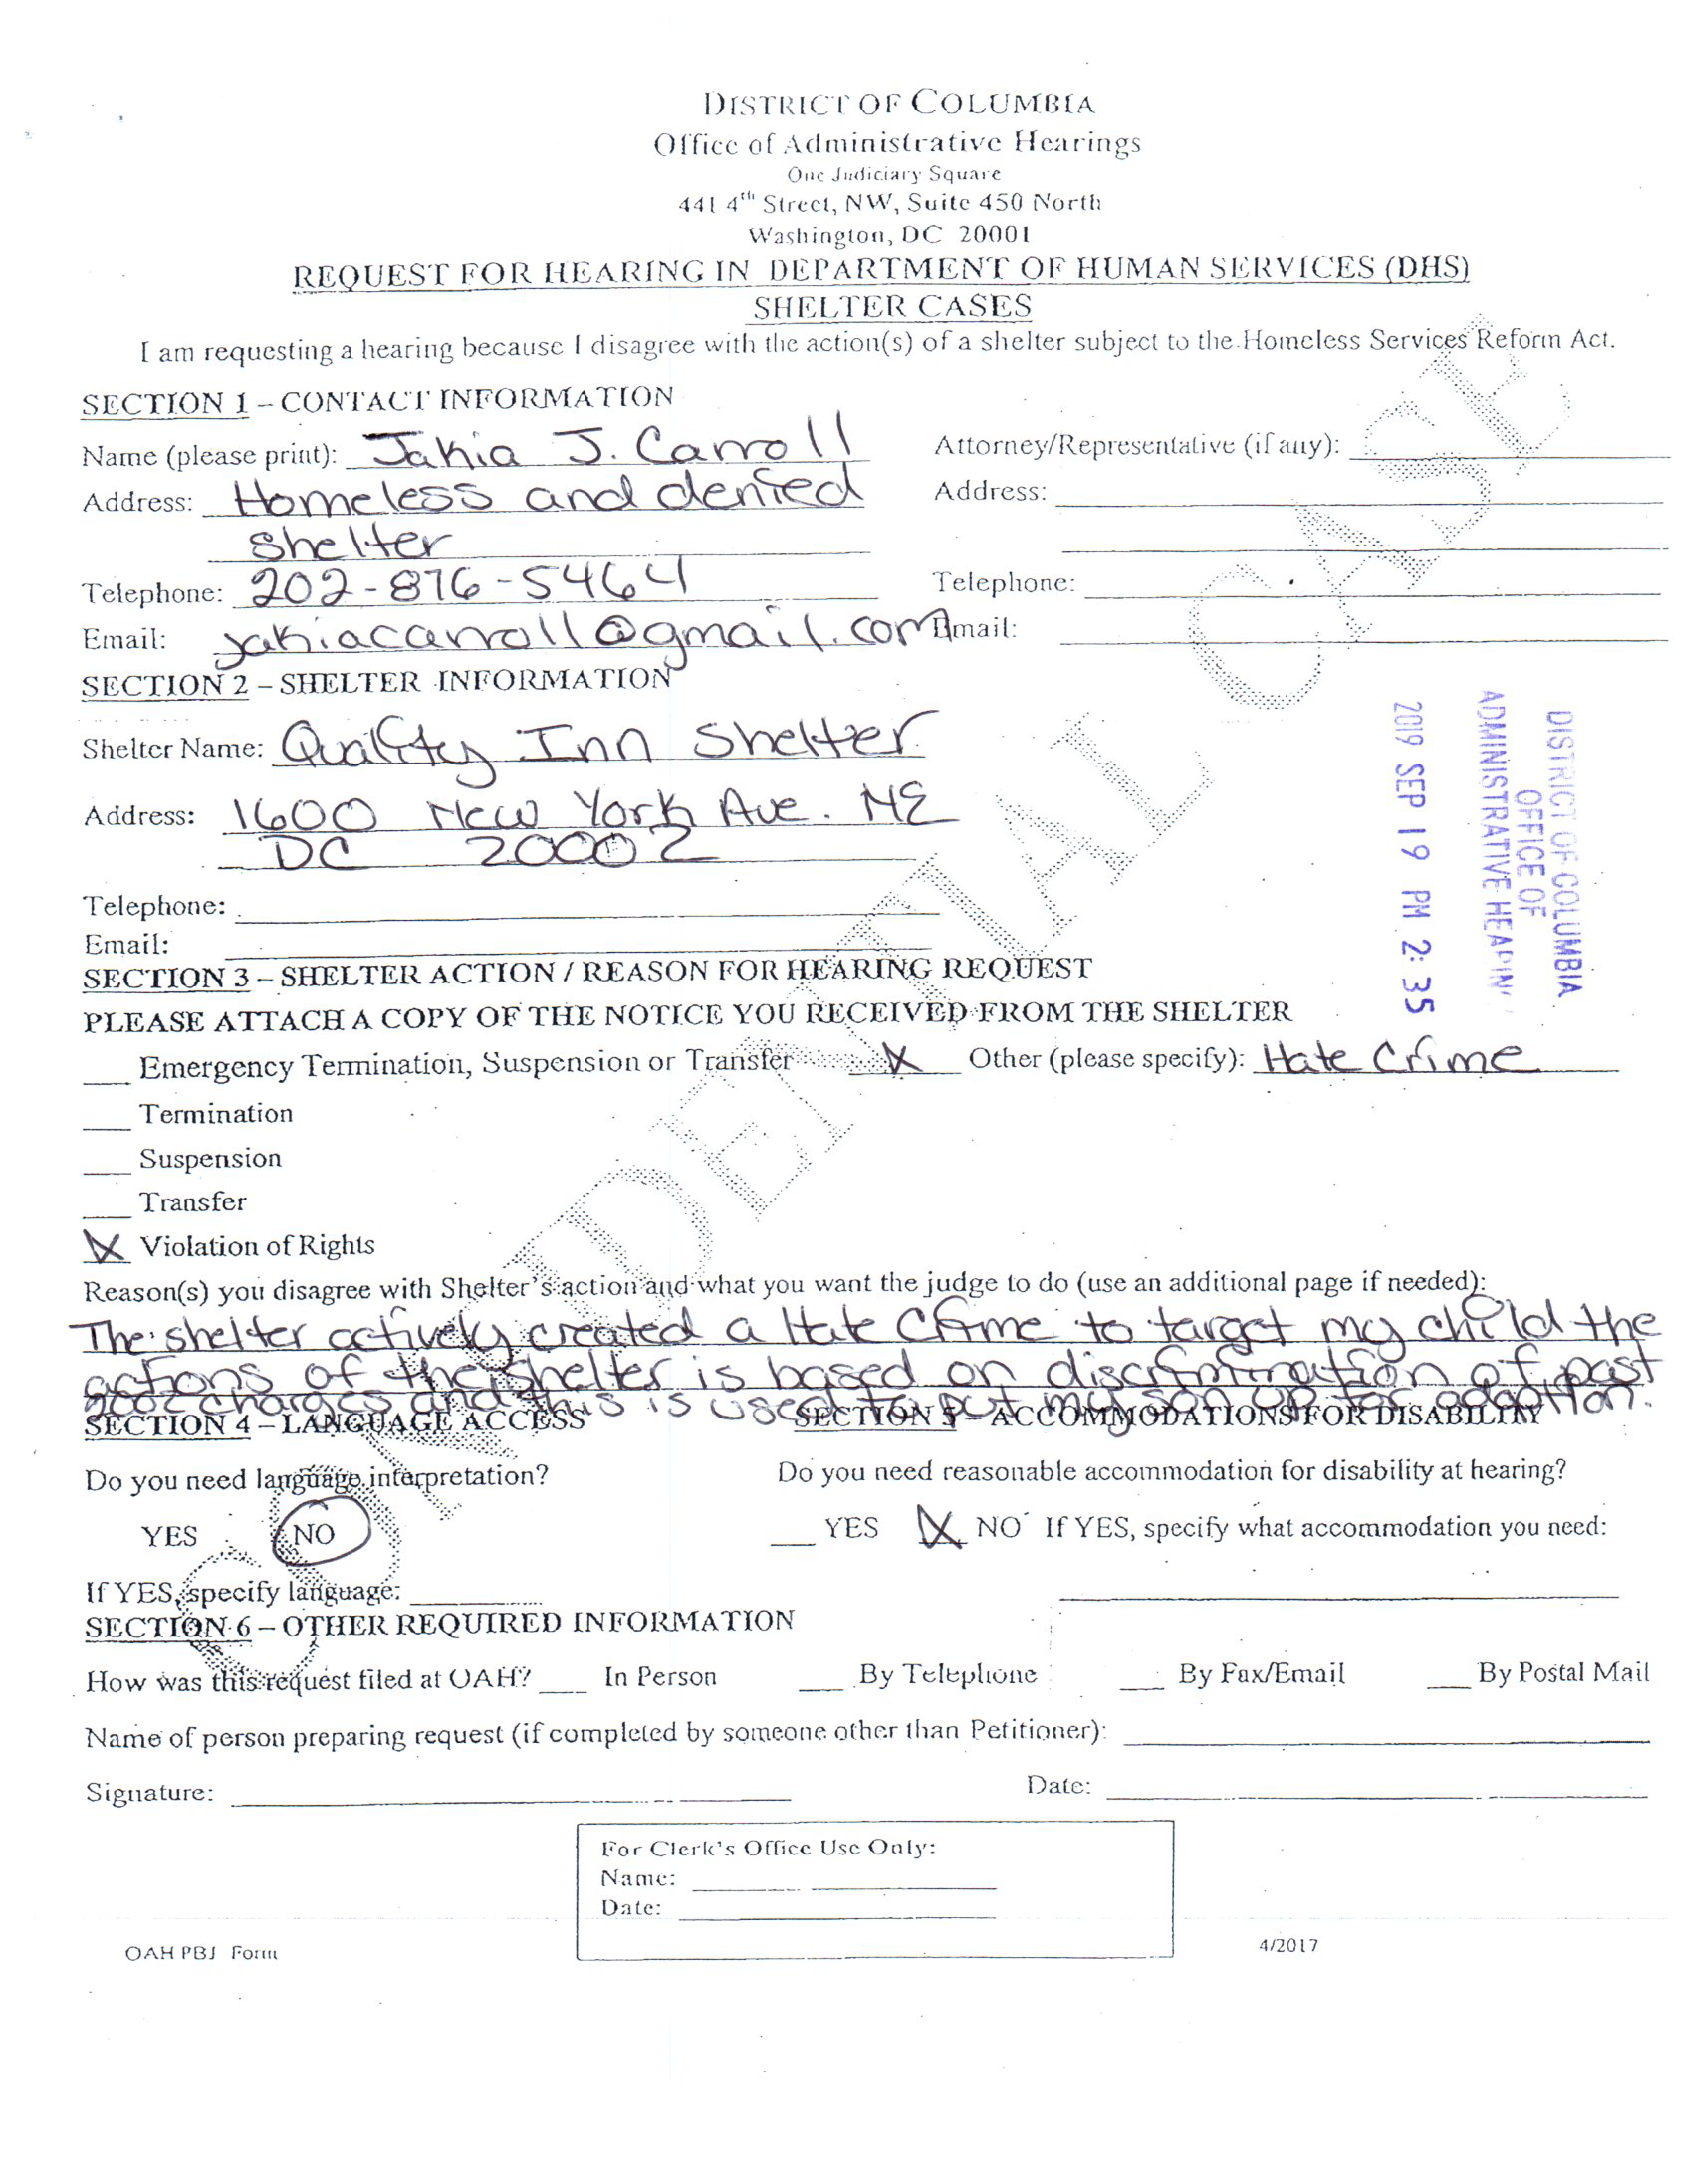 DISTRICT OF COLUMBIA
Office of Administrative Hearings
One Judiciary Square
441 4th Street, NW, Suite 450 North
Washington, DC 20001
REQUEST FOR HEARING IN DEPARTMENT OF HUMAN SERVICES (DHS)
SHELTER CASES
I am requesting a hearing because I disagree with the action(s) of a shelter subject to the Homeless Services Reform Act.
SECTION 1 – CONTACT INFORMATION
Name (please print): Jakia J. Carroll Attorney/Representative (if any):
Address: Homeless and denied Address:
shelter
Telephone: 202-876-5464 Telephone:
Email: jakiacarroll@gmail.com Email:
SECTION 2 – SHELTER INFORMATION
Shelter Name: Quality Inn Shelter
Address: 1600 New York Ave. NE
DC 20002
Telephone:
Email:
DISTRICT OF COLUMBIA
OFFICE OF
ADMINISTRATIVE HEARIN
2019 SEP 19 PM 2:35
SECTION 3 – SHELTER ACTION / REASON FOR HEARING REQUEST
PLEASE ATTACH A COPY OF THE NOTICE YOU RECEIVED FROM THE SHELTER
Emergency Termination, Suspension or Transfer X Other (please specify): Hate Crime
Termination
Suspension
Transfer
X Violation of Rights
Reason(s) you disagree with Shelter's action and what you want the judge to do (use an additional page if needed):
The shelter actively created a Hate Crime to target my child the
actions of the shelter is based on discrimination of past
2002 charges and this is used to put my son up for adoption.
SECTION 4 – LANGUAGE ACCESS SECTION 5 – ACCOMMODATIONS FOR DISABILITY
Do you need language interpretation? Do you need reasonable accommodation for disability at hearing?
YES NO YES X NO If YES, specify what accommodation you need:
If YES, specify language:
SECTION 6 – OTHER REQUIRED INFORMATION
How was this request filed at OAH? In Person By Telephone By Fax/Email By Postal Mail
Name of person preparing request (if completed by someone other than Petitioner):
Signature: Date:
For Clerk's Office Use Only:
Name:
Date:
OAH PBJ Form 4/2017
CONFIDENTIAL CASE